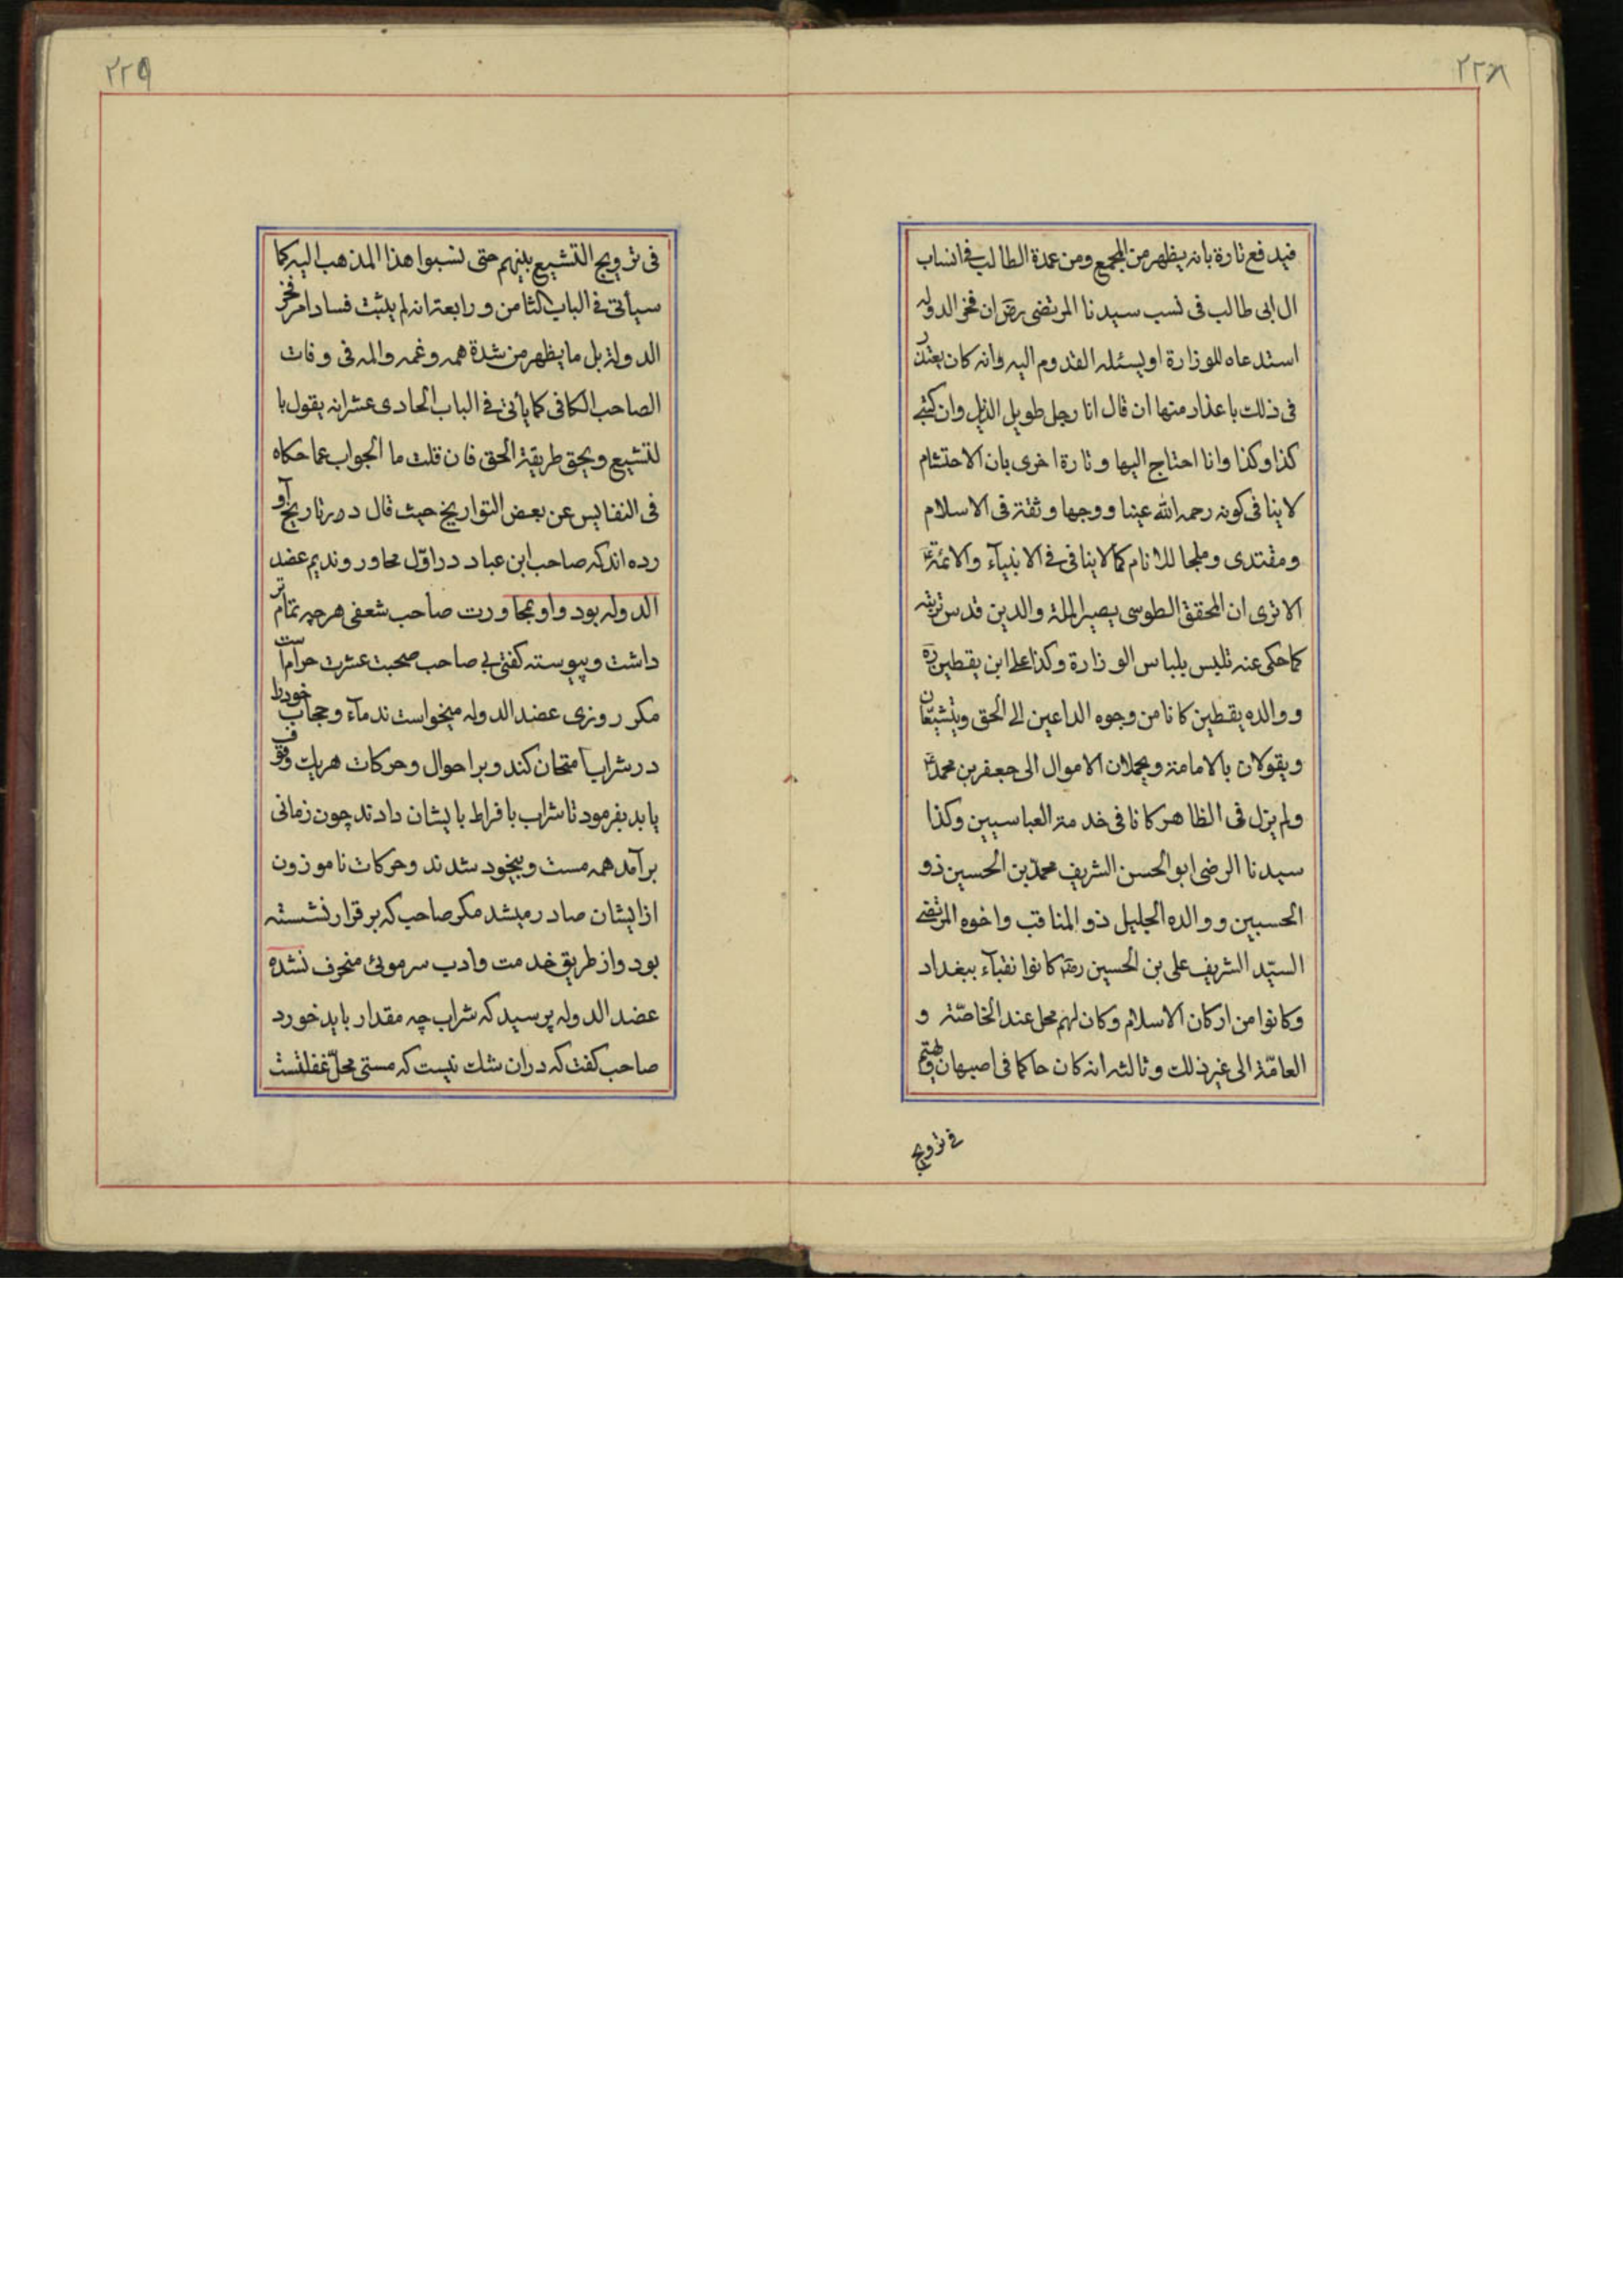 ٢٢٨
فيدفع تارة بانه يظهر من المجمع ومن عمدة الطالب في انساب
ال ابى طالب فى نسب سيدنا المرتضى رض ان فخر الدوله
استدعاه للوزارة او ليسئله القدوم اليه وانه كان يعتذر
فى ذلك باعذار منها ان قال انا رجل طويل الذيل وان كتبى
كذا وكذا وانا احتاج اليها وتارة اخرى بان الاحتشام
لا ينافى كونه رحمه الله عينا ووجها وثقة فى الاسلام
ومقتدى وملجا للانام كما لا ينافى فى الانبيآء والائمة ع
الا ترى ان المحقق الطوسى نصير الملة والدين قدس تربته
كما حكى عنه تلبس بلباس الوزارة وكذا على ابن يقطين ره
ووالده يقطين كانا من وجوه الداعين الى الحق ويتشيّعان
ويقولان بالامامة ويحملان الاموال الى جعفر بن محمد ع
ولم يزل فى الظاهر كانا فى خدمة العباسيين وكذا
سيدنا الرضى ابو الحسن الشريف محمد بن الحسين ذو
الحسبين ووالده الجليل ذو المناقب واخوه المرتضى
السيّد الشريف على بن الحسين كانوا نقبآء ببغداد
وكانوا من اركان الاسلام وكان لهم محل عند الخاصّة و
العامّة الى غير ذلك وثالثه انه كان حاكما فى اصبهان ويهتم
فى ترويج
٢٢٩
فى ترويج التشيع بينهم حتى نسبوا هذا المذهب اليه كما
سيأتى فى الباب الثامن ورابعة انه لم يثبت فساد امر فخر
الدولة بل ما يظهر من شدة همه وغمه والمه فى وفات
الصاحب الكافى كما يأتى فى الباب الحادى عشر انه يقول با
لتشيع ويحق طريقة الحق فان قلت ما الجواب عما حكاه
فى النفايس عن بعض التواريخ حيث قال در تاريخ آو
رده اند كه صاحب ابن عباد در اوّل محاور ونديم عضد
الدوله بود واو بمجاورت صاحب شعفى هر چه تمام تر
داشت وپيوسته كفتى بى صاحب صحبت عشرت حرام است
مكر روزى عضد الدوله ميخواست ندمآء وحجاب خود را
در شراب امتحان كند وبر احوال وحركات هريك وقوف
يابد بفرمود تا شراب بافراط بايشان دادند چون زمانى
برآمد همه مست وبيخود شدند وحركات ناموزون
از ايشان صادر ميشد مكر صاحب كه بر قرار نشسته
بود واز طريق خدمت وادب سر موئى منحرف نشده
عضد الدوله پرسيد كه شراب چه مقدار بايد خورد
صاحب كفت كه دران شك نيست كه مستى محلّ غفلتست